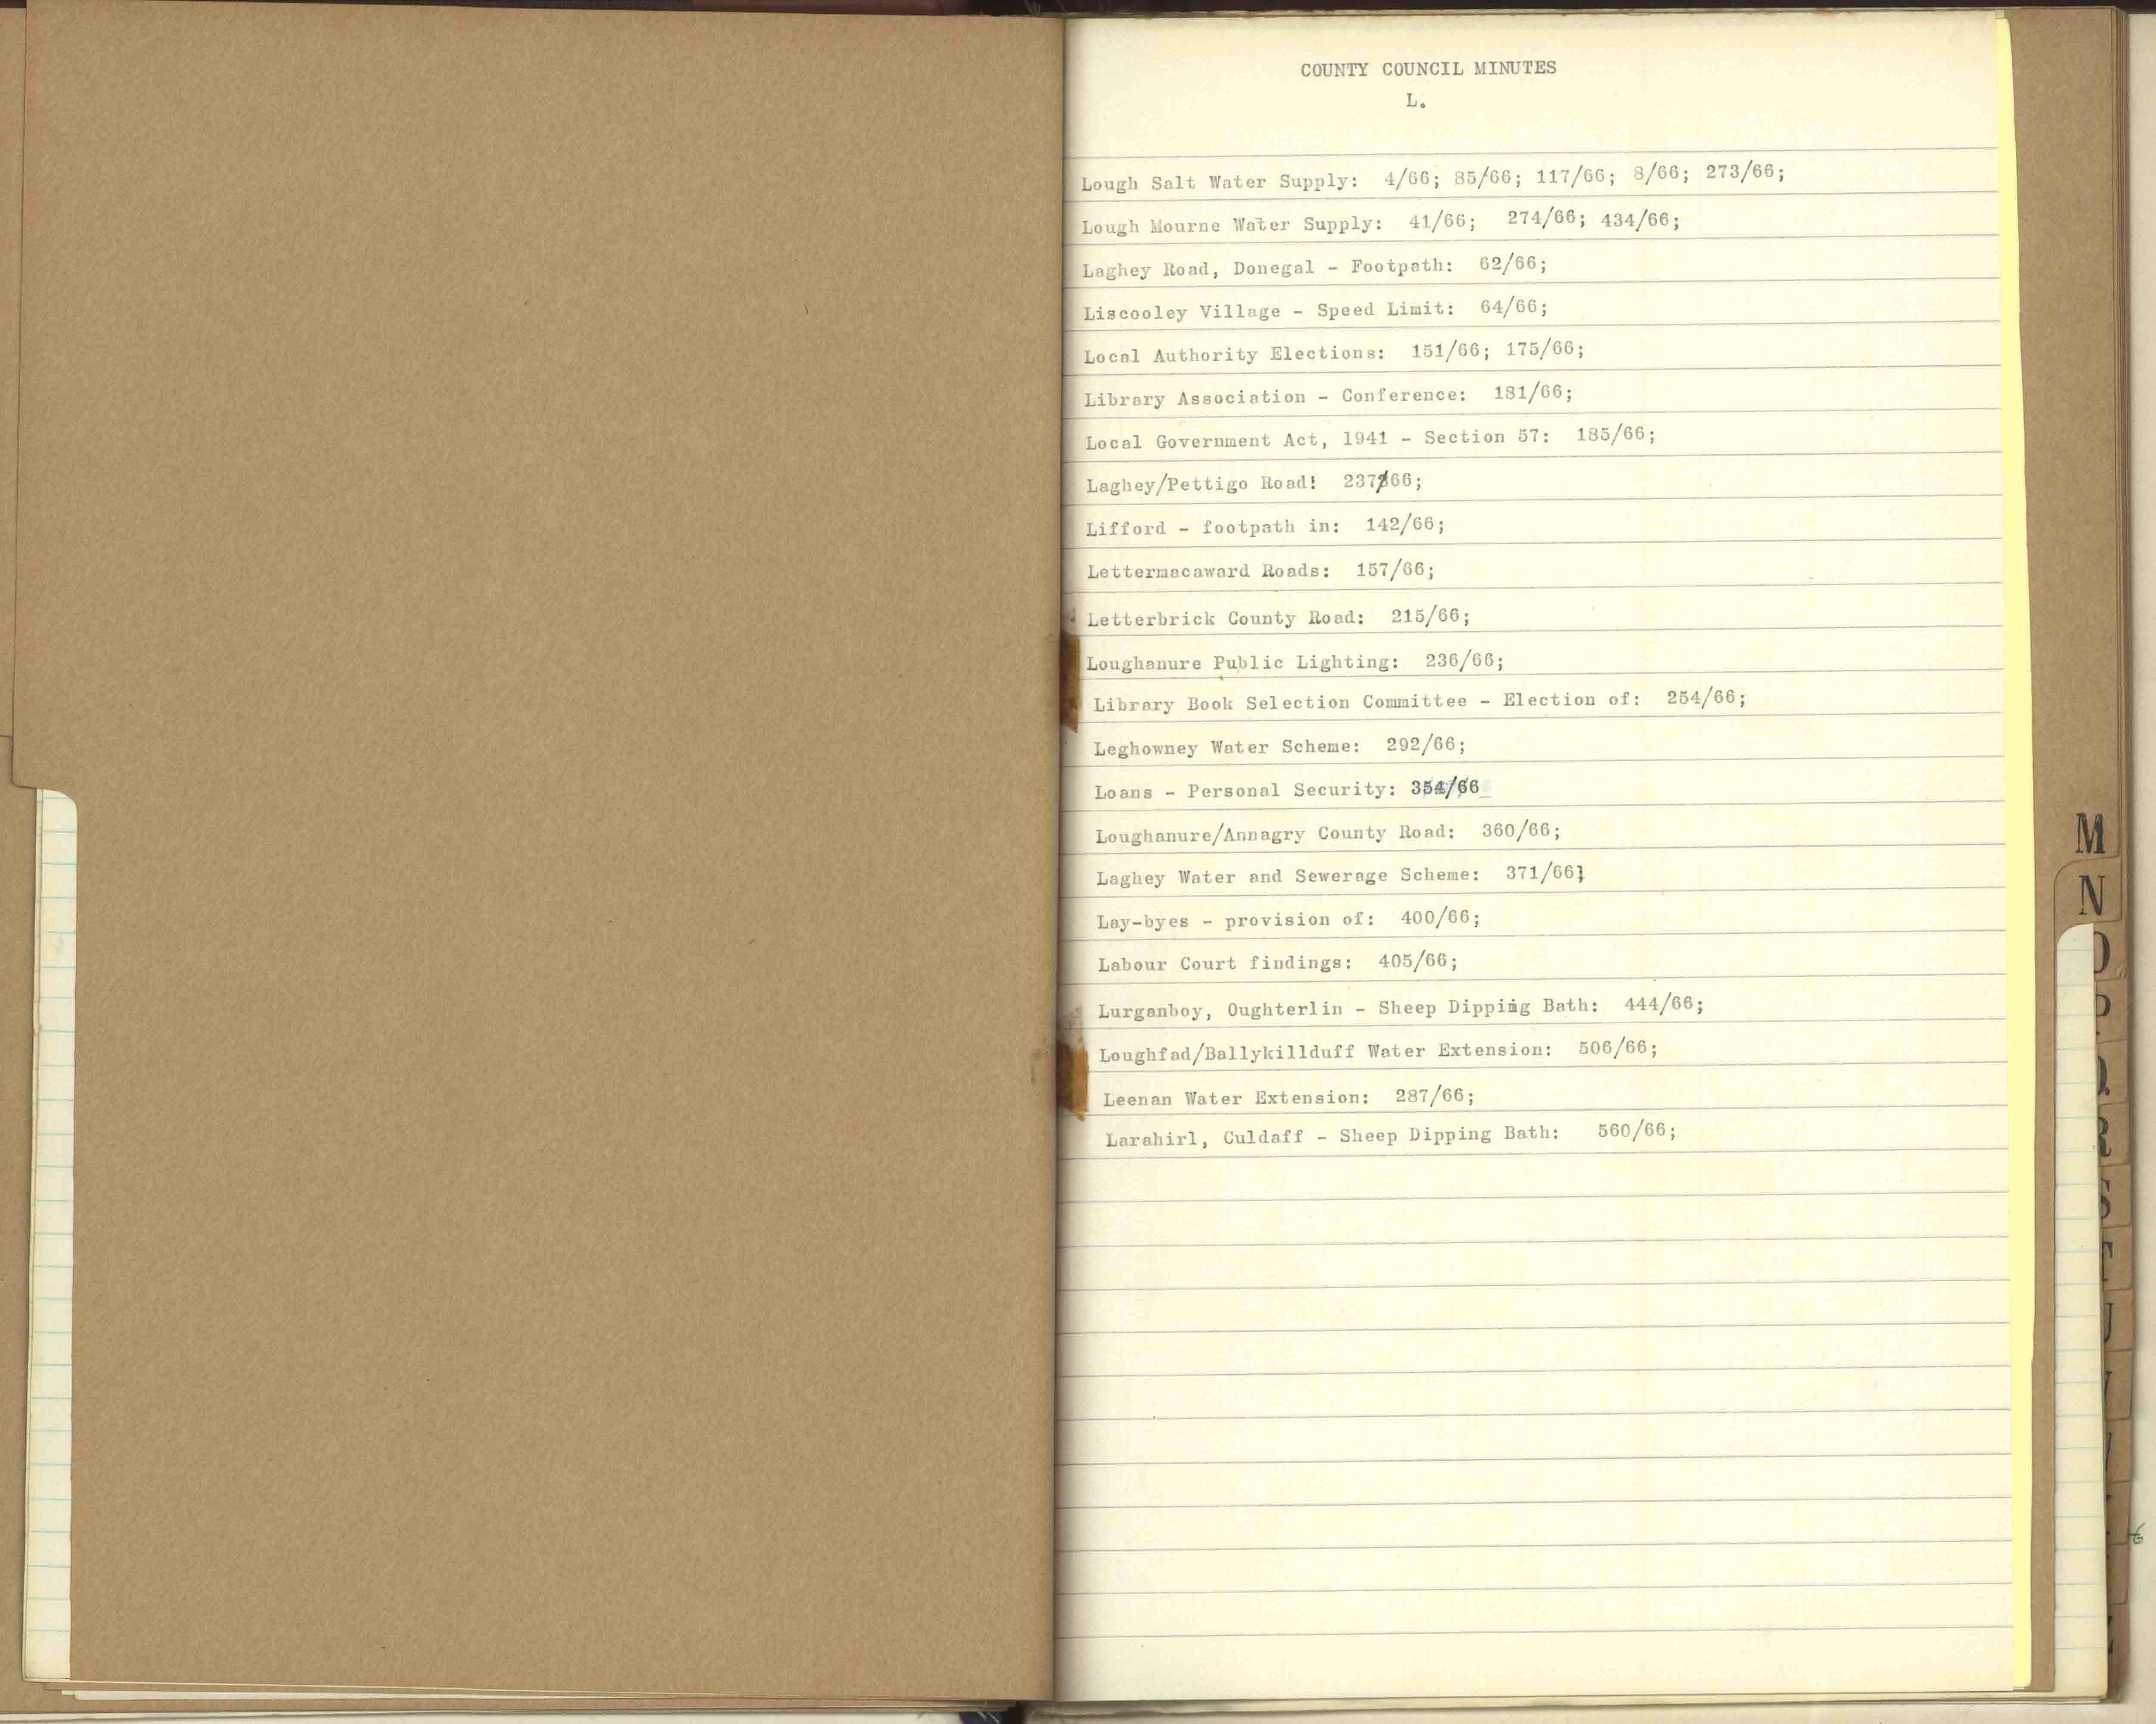 COUNTY COUNCIL MINUTES
L.
Lough Salt Water Supply: 4/66; 85/66; 117/66; 8/66; 273/66;
Lough Mourne Water Supply: 41/66; 274/66; 434/66;
Laghey Road, Donegal - Footpath: 62/66;
Liscooley Village - Speed Limit: 64/66;
Local Authority Elections: 151/66; 175/66;
Library Association - Conference: 181/66;
Local Government Act, 1941 - Section 57: 185/66;
Laghey/Pettigo Road: 237/66;
Lifford - footpath in: 142/66;
Lettermacaward Roads: 157/66;
Letterbrick County Road: 215/66;
Loughanure Public Lighting: 236/66;
Library Book Selection Committee - Election of: 254/66;
Leghowney Water Scheme: 292/66;
Loans - Personal Security: 354/66
Loughanure/Annagry County Road: 360/66;
Laghey Water and Sewerage Scheme: 371/66;
Lay-byes - provision of: 400/66;
Labour Court findings: 405/66;
Lurganboy, Oughterlin - Sheep Dipping Bath: 444/66;
Loughfad/Ballykillduff Water Extension: 506/66;
Leenan Water Extension: 287/66;
Larahirl, Culdaff - Sheep Dipping Bath: 560/66;
M
N
O
P
Q
R
S
T
U